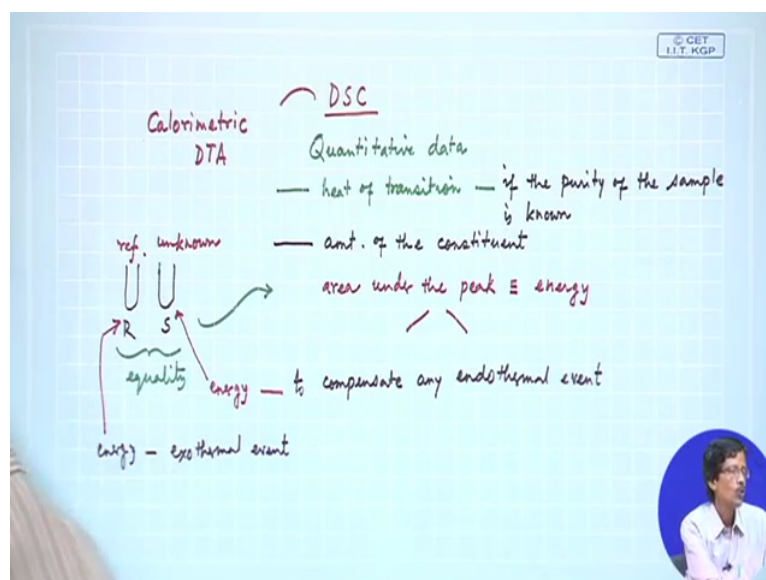 © CET
I.I.T. KGP
DSC
Calorimetric
DTA
Quantitative data
— heat of transition — if the purity of the sample
is known
— amt. of the constituent
area under the peak ≡ energy
ref. unknown
R S
equality
energy — to compensate any endothermal event
energy — exothermal event